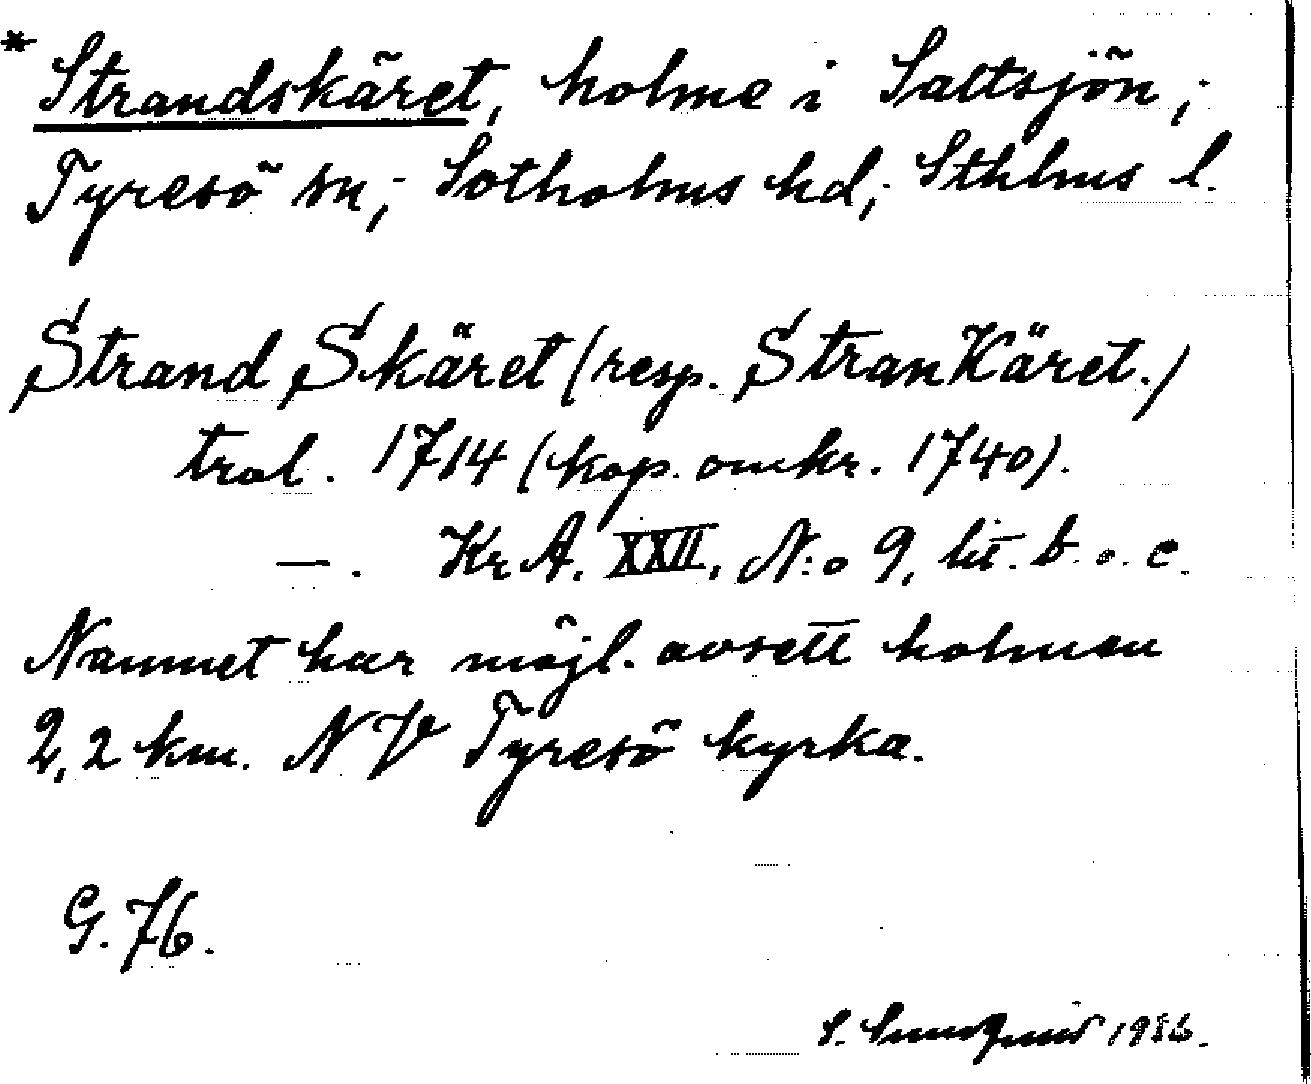 * Strandskäret, holme i Saltsjön,
Tyresö sn, Sotholms hd, Sthlms l.
Strand Skäret (resp. StranKäret.)
trol. 1714 (kop. omkr. 1740).
— . KrA. XXII, N:o 9, lit. b. o. c.
Namnet har möjl. avsett holmen
2,2 km. NV Tyresö kyrka.
G. 76.
S.